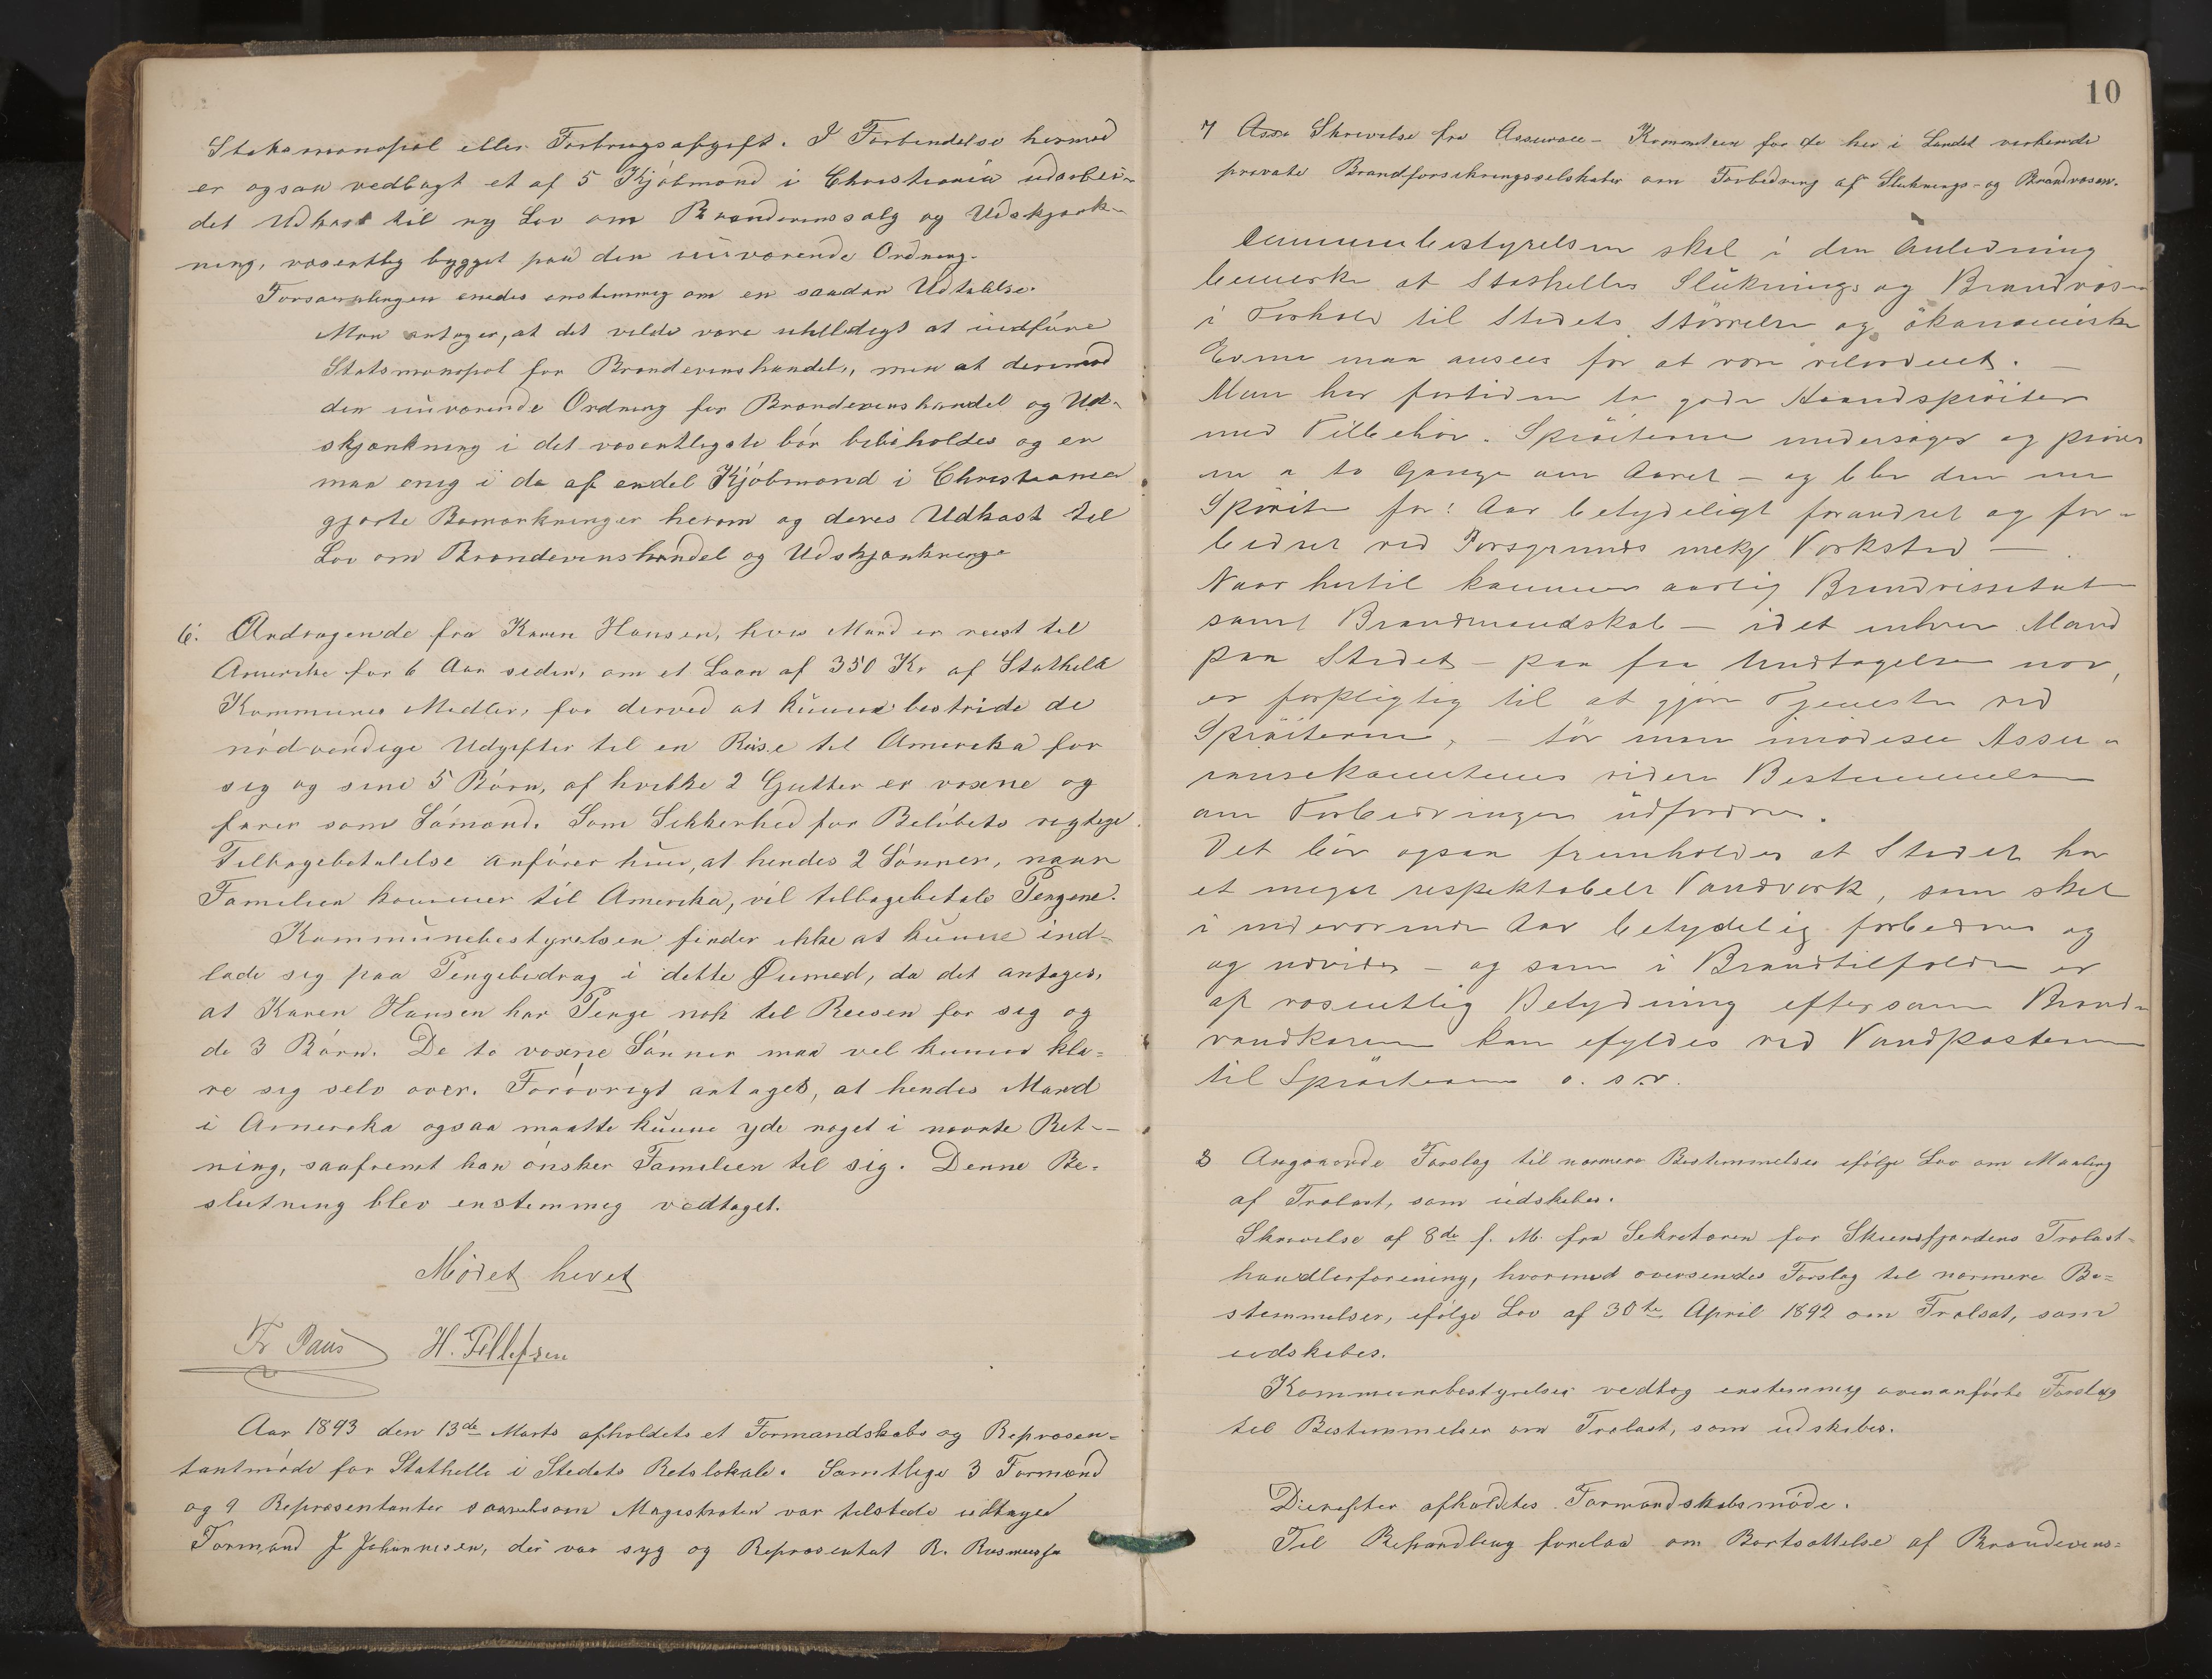 Statsmonopol eller Forbrugsafgift. I Forbindelse hermed
er ogsaa vedlagt et af 5 Kjöbmænd i Christiania udarbei-
det Udkast til ny Lov om Brændevinssalg og Udskjænk-
ning, væsentlig bygget paa den nuværende Ordning.
Forsamlingen enedes enstemmig om en saadan Udtalelse.
Man antager, at det vilde være uheldigt at indføre
Statsmonopol for Brændevinshandel, men at derimod
den nuværende Ordning for Brændevinshandel og Ud-
skjænkning i det væsentligste bör bibeholdes og er
man enig i de af endel Kjöbmænd i Christiania
gjorte Bemærkninger herom og deres Udkast til
Lov om Brændevinshandel og Udskjænkning
6. Andragende fra Karen Hansen, hvis Mand er reist til
Amerika for 6 Aar siden, om et Laan af 350 Kr af Stathelle
Kommunes Midler, for derved at kunne bestride de
nödvendige Udgifter til en Reise til Amerika for
sig og sine 5 Börn, af hvilke 2 Gutter er voxne og
farer som Sömænd. Som Sikkerhed for Belöbets rigtige
Tilbagebetalelse anförer hun, at hendes 2 Sönner, naar
Familien kommer til Amerika, vil tilbagebetale Pengene.
Kommunebestyrelsen finder ikke at kunne ind-
lade sig paa Pengebidrag i dette Öiemed, da det antages,
at Karen Hansen har Penge nok til Reisen for sig og
de 3 Börn. De to voxne Sönner maa vel kunne kla-
re sig selv over. Forövrigt antages, at hendes Mand
i Amerika ogsaa maatte kunne yde noget i nævnte Ret-
ning, saafremt han önsker Familien til sig. Denne Be-
slutning blev enstemmig vedtaget.
Mödet hevet
Fr Paus H. Tellefsen
Aar 1893 den 13de Marts afholdets et Formandskabs og Repræsen-
tantmöde for Stathelle i Stedets Retslokale. Samtlige 3 Formænd
og 9 Repræsentanter saavelsom Magistraten var tilstede udtagen
Formand J Johannesen, der var syg og Repræsentat R. Rasmussen
10
7 Assu Skrivelse fra Assurace- Kommiteen for de her i Landet verkende
private Brandforsikringsselskaber om Forbedring af Sluknings- og Brandvæsen.
Communebestyrelsen skal i den Anledning
bemerke at Stathelles Sluknings og Brandvæsen
i Forhold til Stedets Störrelse og ökonomiske
Evne maa ansees for at være velordnet. —
Man har fortiden to gode Haandspröiter
med Tilbehör. Spröiterne undersöges og pröves
en a to Gange om Aaret — og blev den ene
Spröite for: Aar betydeligt forandret og for-
bedret ved Porsgrunds mek. Værksted —
Naar hertil kommer aarlig Brandvisitat
samt Brandmandskab — idet enhver Mand
paa Stedet — paa faa Undtagelser nær,
er forpligtig til at gjöre Tjeneste ved
Spröiterne, — tör man imödese Assu-
ransekomiteens videre Bestemmelse
om Forbedringer udfordres.
Det bör ogsaa fremholdes at Stedet har
et meget respektabelt Vandværk, som skal
i indeværende Aar betydelig forbedres og
og udvides — og som i Brandtilfælde er
af væsentlig Betydning eftersom Brand-
vandkarene kan efyldes ved Vandposterne
til Spröiterne o. s. v.
8 Angaaende Forslag til nærmere Bestemmelser ifölge Lov om Maaling
af Trælast, som udskibes.
Skrivelse af 8de f. M. fra Sekretæren for Skiensfjordens Trælast-
handlerforening, hvormed oversendes Forslag til nærmere Be-
stemmelser, ifölge Lov af 30te April 1892 om Trælsat, som
udskibes.
Kommunebestyrelsen vedtog enstemmig ovenanförte Forslag
til Bestemmelser om Trælast, som udskibes.
Dierefter afholdtes Formandskabsmöde.
Til Behandling forelaa om Bortsættelse af Brændevins-